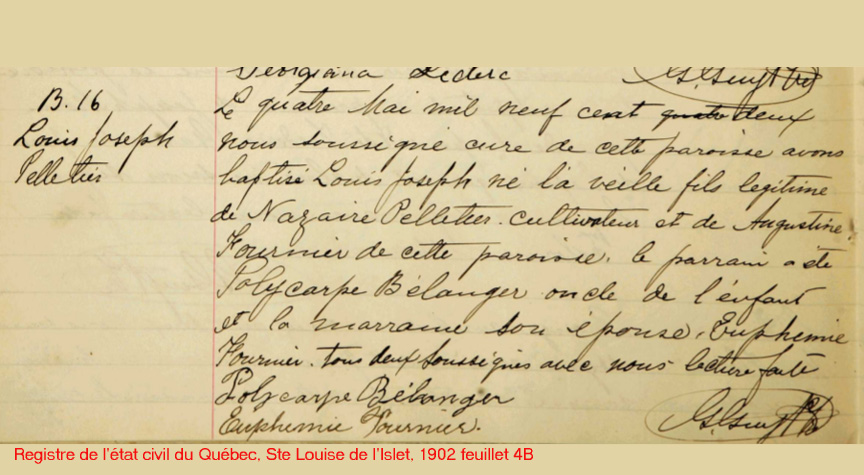 Georgiana Leclerc
B. 16
Louis Joseph
Pelletier
Le quatre Mai mil neuf cent quatre deux
nous soussigné curé de cette paroisse avons
baptisé Louis Joseph né la veille fils legitime
de Nazaire Pelletier cultivateur et de Augustine
Fournier de cette paroisse. le parrain a été
Polycarpe Bélanger oncle de l'enfant
et la marraine son épouse, Euphemie
Fournier. tous deux soussignés avec nous lecture faite
Polycarpe Bélanger
Euphemie Fournier.
Registre de l'état civil du Québec, Ste Louise de l'Islet, 1902 feuillet 4B